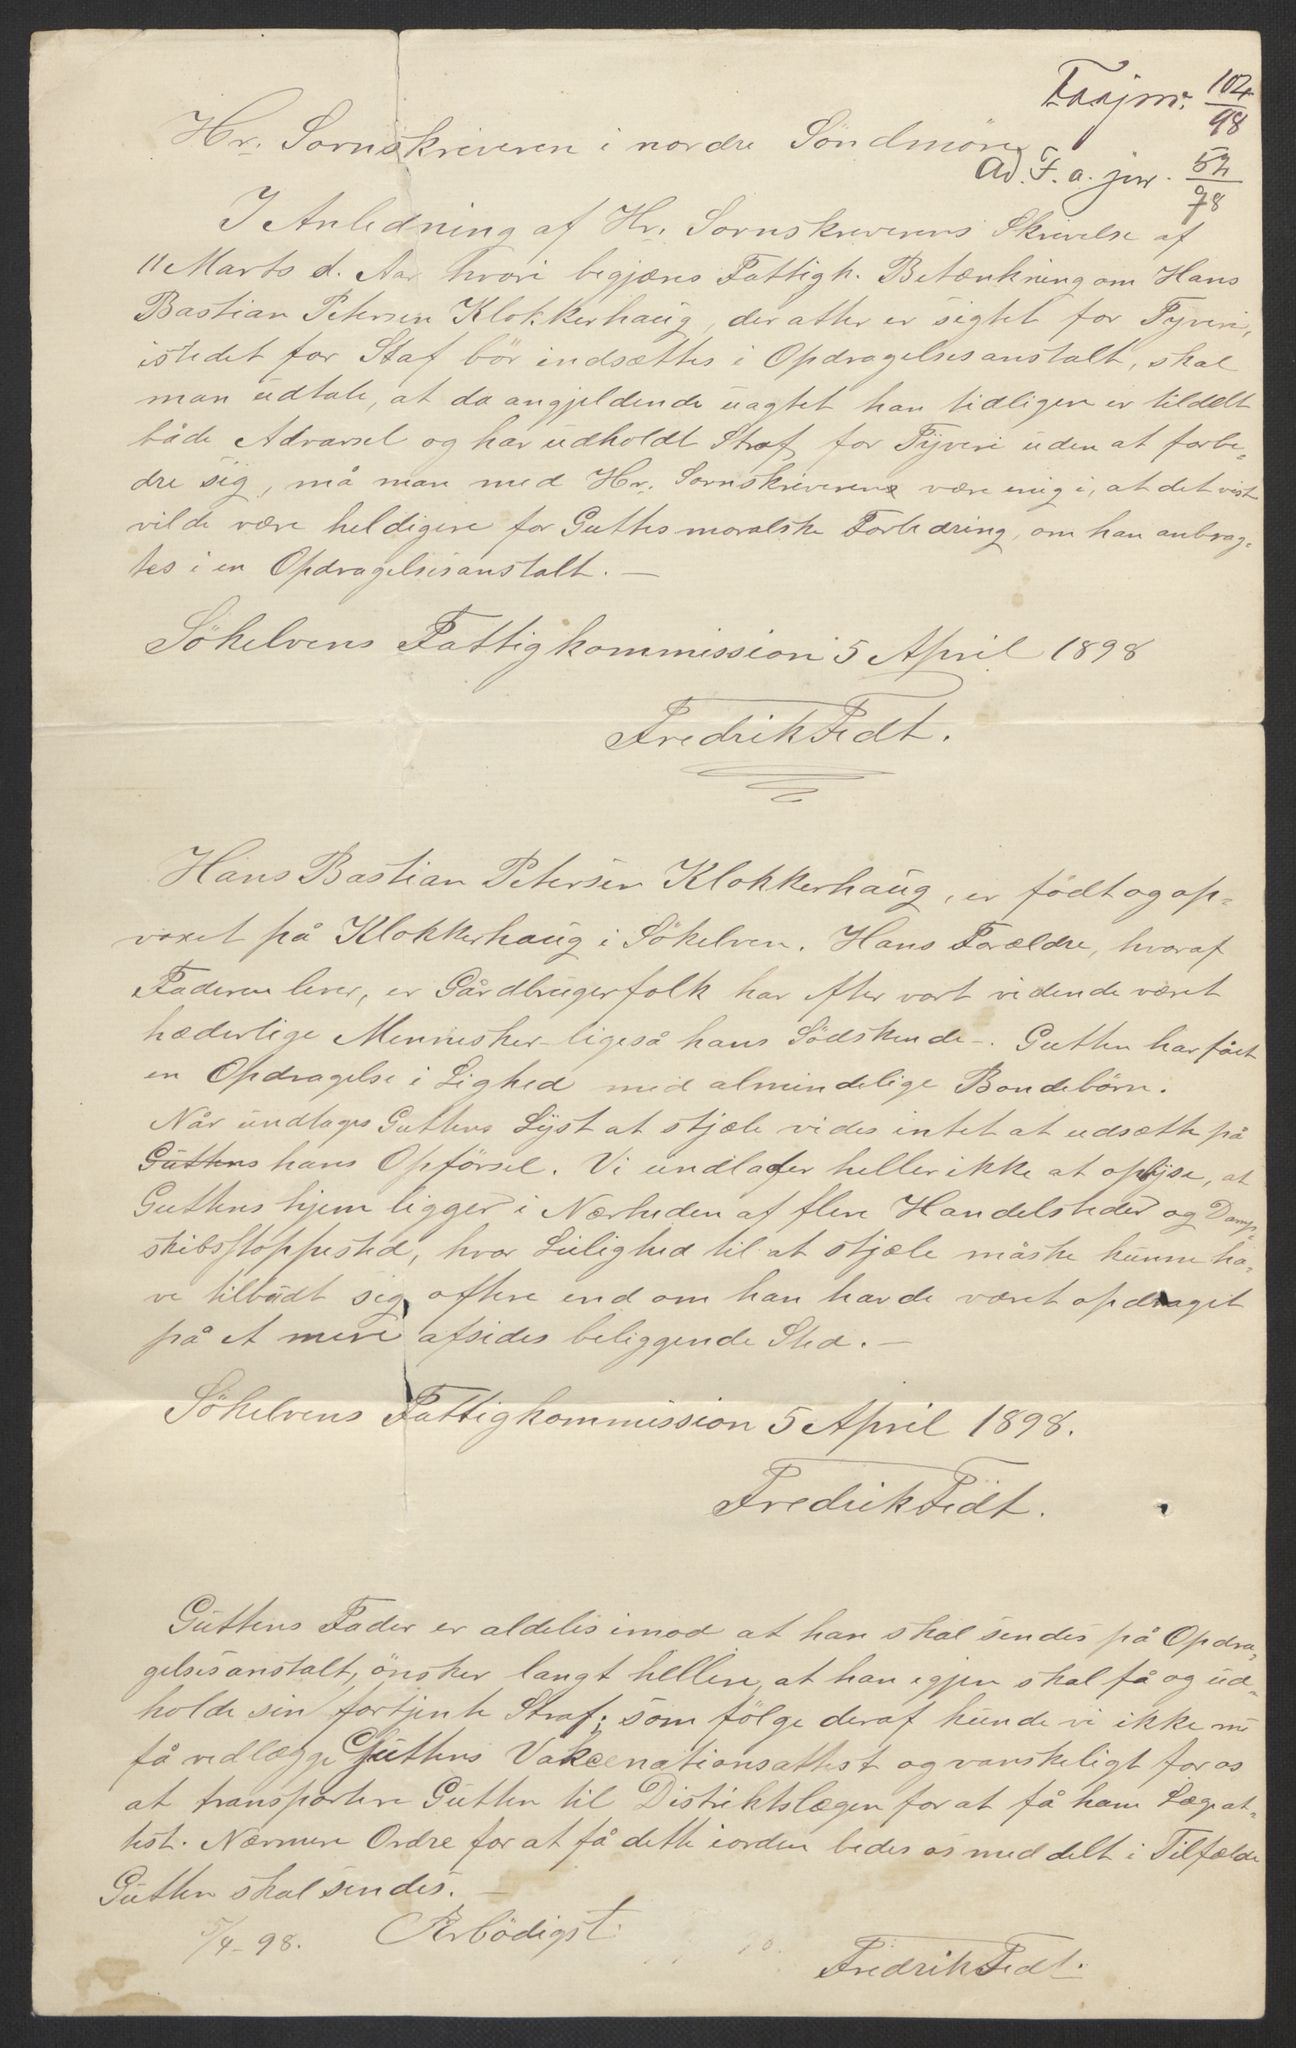 Faajnr. 104/98
Hr. Sornskriveren i nordre Söndmöre
Ad. F. a. jnr. 52/98
I Anledning af Hr. Sornskriverens Skrivelse af
11 Marts d. Aar hvori begjæres Fattigk. Betænkning om Hans
Bastian Petersen Klokkerhaug, der atter er sigtet for Tyveri,
istedet for Staf bör indsættes i Opdragelsesanstalt, skal
man udtale, at da angjeldende uagtet han tidligere er tildelt
både Advarsel og har udholdt Straf for Tyveri uden at forbe-
dre sig, må man med Hr. Sornskriveren være enig i, at det vist
vilde være heldigere for Guttes moralske Forbedring, om han anbrag-
tes i en Opdragelsesanstalt. —
Sökelvens Fattigkommission 5 April 1898
Fredrik Fedt.
Hans Bastian Petersen Klokkerhaug, er födt og op-
voxet på Klokkerhaug i Sökelven. Hans Forældre, hvoraf
Faderen lever, er Gårdbrugerfolk har efter vort vidende været
hæderlige Mennesker ligeså hans Södskende -. Gutten har fået
en Opdragelse i Lighed med almindelige Bondebörn.
Når undtages Guttens Lyst at stjæle vides intet at udsætte på
Guttens hans Opförsel. Vi undlader heller ikke at oplyse, at
Guttens hjem ligger i Nærheden af flere Handelsteder og Damp-
skibsstoppested, hvor Leilighed til at stjæle måske kunne ha-
ve tilbudt sig oftere end om han havde været opdraget
på et mere afsides beliggende Sted. —
Sökelvens Fattigkommission 5 April 1898.
Fredrik Fedt.
Guttens Fader er aldeles imod at han skal sendes på Opdra-
gelsesanstalt, önsker langt hellere, at han igjen skal få og ud-
holde sin fortjente Straf; som fölge deraf kunde vi ikke nu
få vedlægge Guttens Vakcenationsattest og vanskeligt for os
at transportere Gutten til Distriktslægen for at få ham Lægeat-
test. Nærmere Ordre for at få dette iorden bedes os meddelt i Tilfælde
Gutten skal sendes. —
5/4-98. Ærbödigst
Fredrik Fedt.